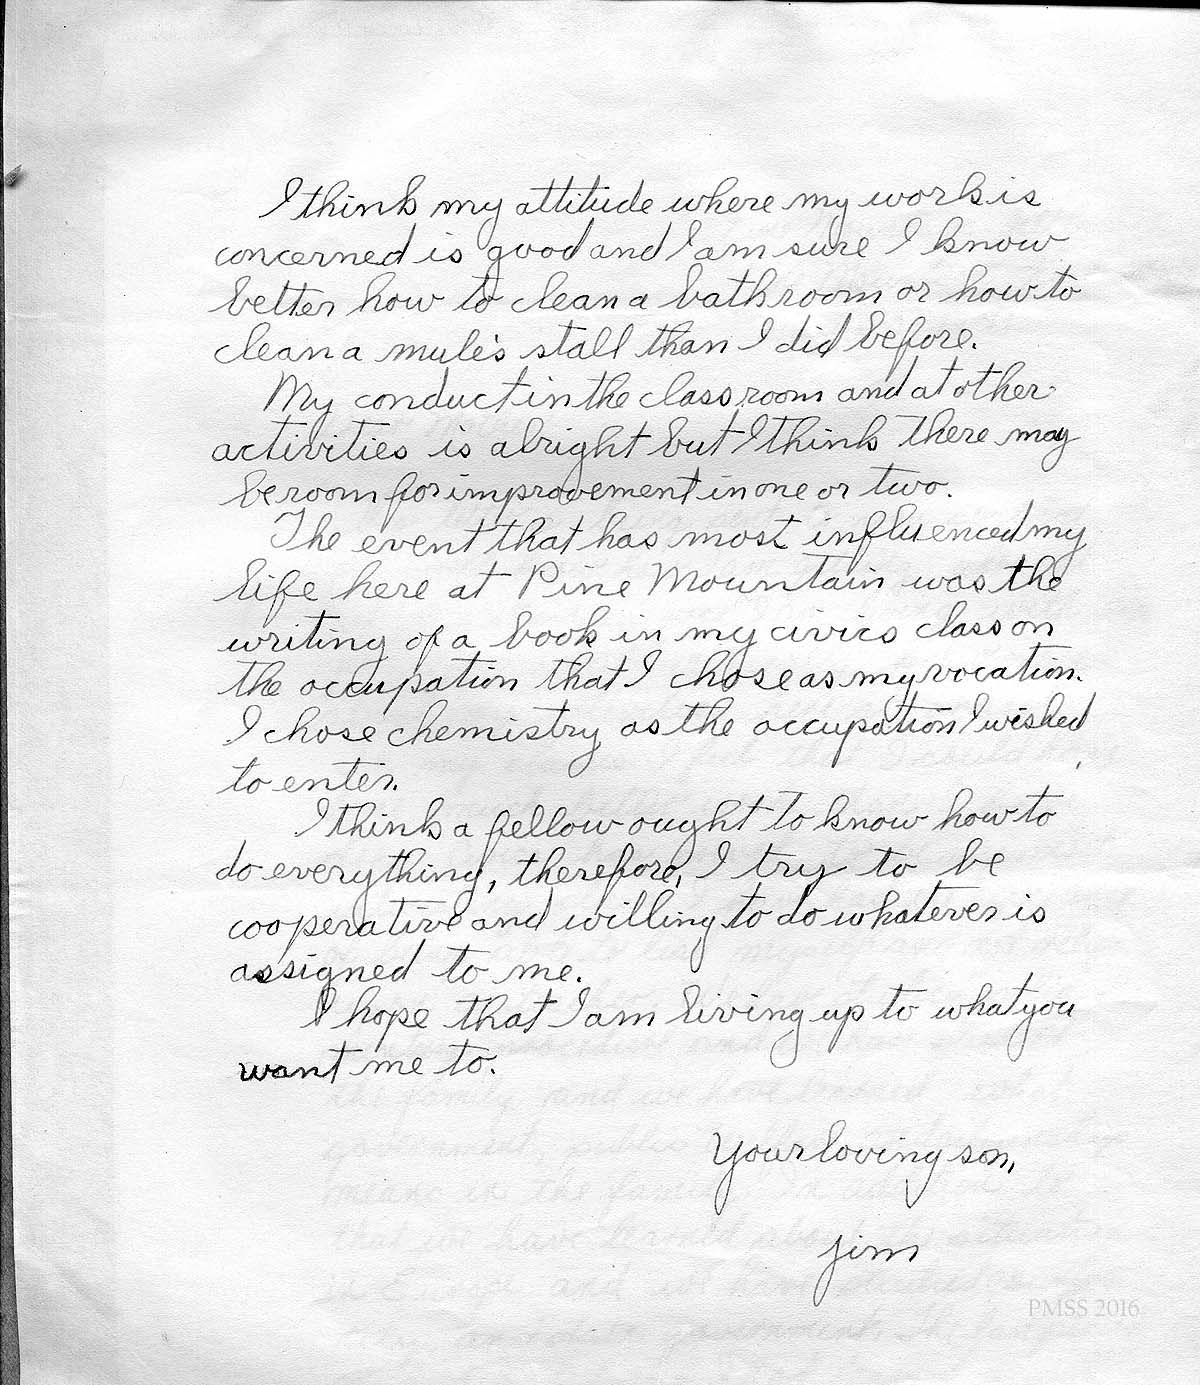 I think my attitude where my work is
concerned is good and I am sure I know
better how to clean a bathroom or how to
clean a mule's stall than I did before.
My conduct in the class room and at other
activities is alright but I think there may
be room for improvement in one or two.
The event that has most influenced my
life here at Pine Mountain was the
writing of a book in my civics class on
the occupation that I chose as my vocation.
I chose chemistry as the occupation I wished
to enter.
I think a fellow ought to know how to
do everything, therefore, I try to be
cooperative and willing to do whatever is
assigned to me.
I hope that I am living up to what you
want me to.
Your loving son,
Jim
PMSS 2016